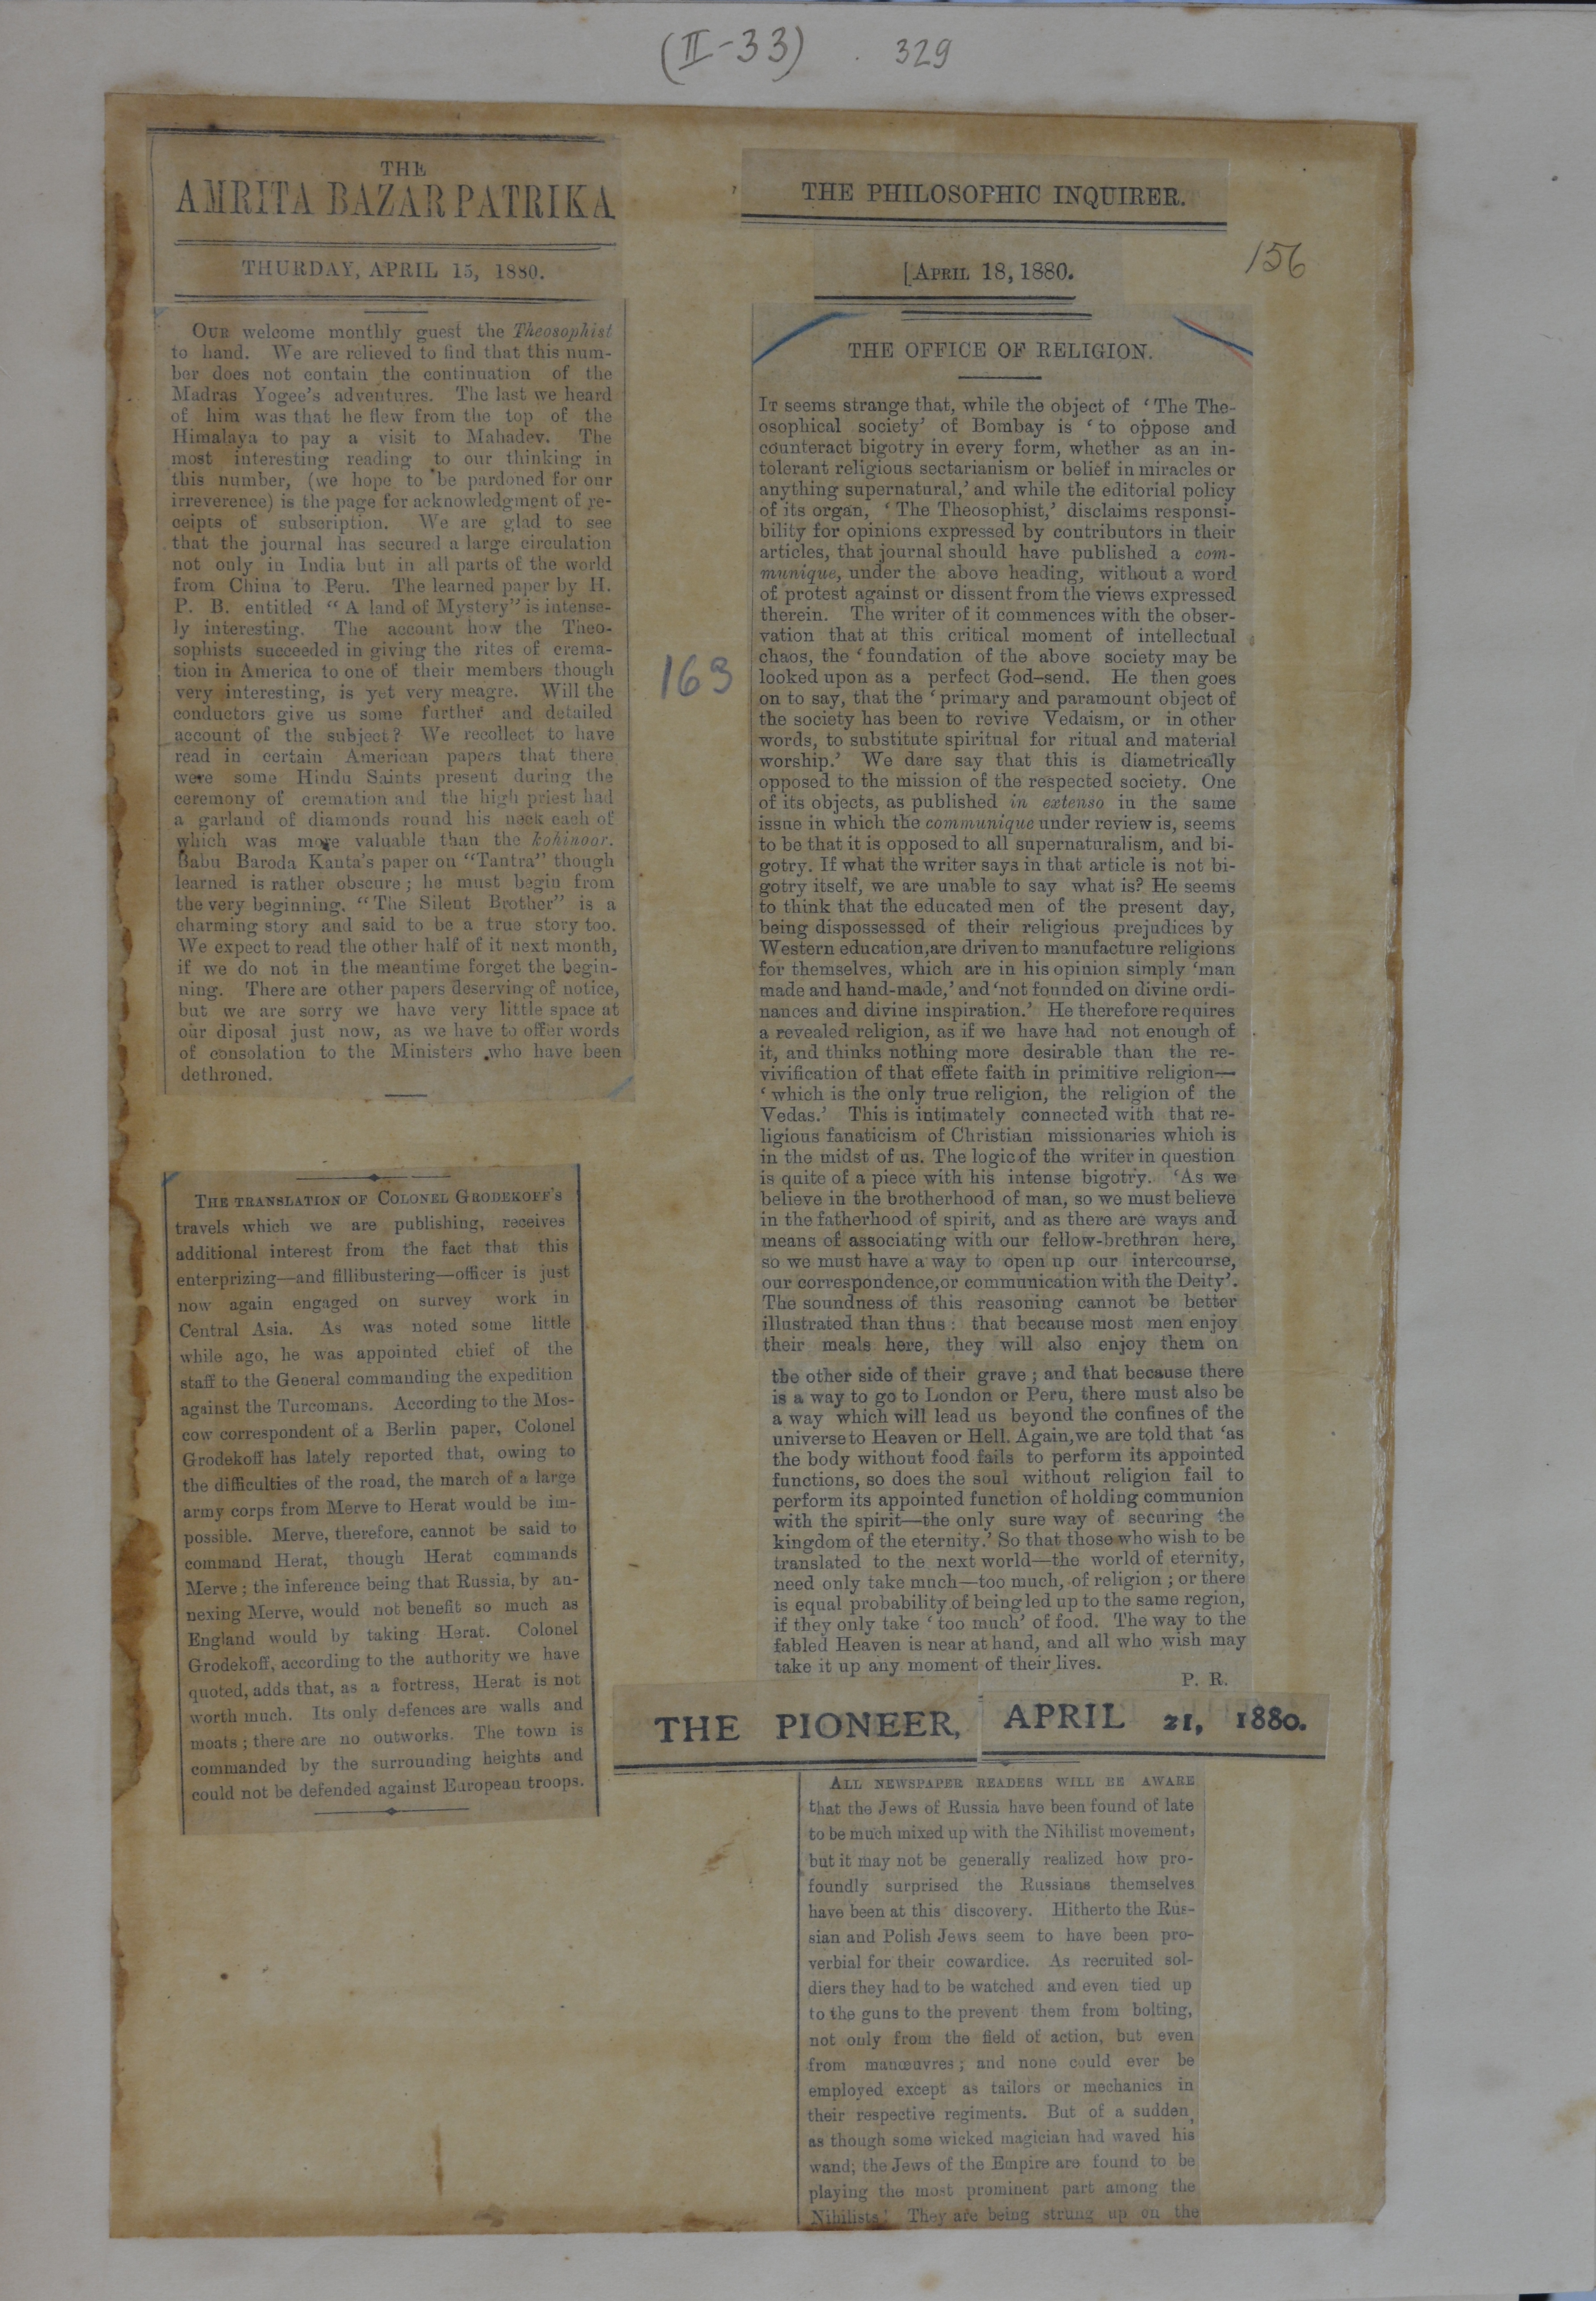 (II-33) . 329
THE
AMRITA BAZAR PATRIKA
THURDAY, APRIL 15, 1880.
OUR welcome monthly guest the Theosophist
to hand. We are relieved to find that this num-
ber does not contain the continuation of the
Madras Yogee's adventures. The last we heard
of him was that he flew from the top of the
Himalaya to pay a visit to Mahadev. The
most interesting reading to our thinking in
this number, (we hope to be pardoned for our
irreverence) is the page for acknowledgment of re-
ceipts of subscription. We are glad to see
that the journal has secured a large circulation
not only in India but in all parts of the world
from China to Peru. The learned paper by H.
P. B. entitled "A land of Mystery" is intense-
ly interesting. The account how the Theo-
sophists succeeded in giving the rites of crema-
tion in America to one of their members though
very interesting, is yet very meagre. Will the
conductors give us some further and detailed
account of the subject? We recollect to have
read in certain American papers that there
were some Hindu Saints present during the
ceremony of cremation and the high priest had
a garland of diamonds round his neck each of
which was more valuable than the kohinoor.
Babu Baroda Kanta's paper on "Tantra" though
learned is rather obscure; he must begin from
the very beginning. "The Silent Brother" is a
charming story and said to be a true story too.
We expect to read the other half of it next month,
if we do not in the meantime forget the begin-
ning. There are other papers deserving of notice,
but we are sorry we have very little space at
our diposal just now, as we have to offer words
of consolation to the Ministers who have been
dethroned.
THE TRANSLATION OF COLONEL GRODEKOFF'S
travels which we are publishing, receives
additional interest from the fact that this
enterprizing—and fillibustering—officer is just
now again engaged on survey work in
Central Asia. As was noted some little
while ago, he was appointed chief of the
staff to the General commanding the expedition
against the Turcomans. According to the Mos-
cow correspondent of a Berlin paper, Colonel
Grodekoff has lately reported that, owing to
the difficulties of the road, the march of a large
army corps from Merve to Herat would be im-
possible. Merve, therefore, cannot be said to
command Herat, though Herat commands
Merve; the inference being that Russia, by an-
nexing Merve, would not benefit so much as
England would by taking Herat. Colonel
Grodekoff, according to the authority we have
quoted, adds that, as a fortress, Herat is not
worth much. Its only defences are walls and
moats; there are no outworks. The town is
commanded by the surrounding heights and
could not be defended against European troops.
163
THE PHILOSOPHIC INQUIRER.
[APRIL 18, 1880.
156
THE OFFICE OF RELIGION.
IT seems strange that, while the object of 'The The-
osophical society' of Bombay is 'to oppose and
counteract bigotry in every form, whether as an in-
tolerant religious sectarianism or belief in miracles or
anything supernatural,' and while the editorial policy
of its organ, 'The Theosophist,' disclaims responsi-
bility for opinions expressed by contributors in their
articles, that journal should have published a com-
munique, under the above heading, without a word
of protest against or dissent from the views expressed
therein. The writer of it commences with the obser-
vation that at this critical moment of intellectual
chaos, the 'foundation of the above society may be
looked upon as a perfect God-send. He then goes
on to say, that the 'primary and paramount object of
the society has been to revive Vedaism, or in other
words, to substitute spiritual for ritual and material
worship.' We dare say that this is diametrically
opposed to the mission of the respected society. One
of its objects, as published in extenso in the same
issue in which the communique under review is, seems
to be that it is opposed to all supernaturalism, and bi-
gotry. If what the writer says in that article is not bi-
gotry itself, we are unable to say what is? He seems
to think that the educated men of the present day,
being dispossessed of their religious prejudices by
Western education, are driven to manufacture religions
for themselves, which are in his opinion simply 'man
made and hand-made,' and 'not founded on divine ordi-
nances and divine inspiration.' He therefore requires
a revealed religion, as if we have had not enough of
it, and thinks nothing more desirable than the re-
vivification of that effete faith in primitive religion—
'which is the only true religion, the religion of the
Vedas.' This is intimately connected with that re-
ligious fanaticism of Christian missionaries which is
in the midst of us. The logic of the writer in question
is quite of a piece with his intense bigotry. 'As we
believe in the brotherhood of man, so we must believe
in the fatherhood of spirit, and as there are ways and
means of associating with our fellow-brethren here,
so we must have a way to open up our intercourse,
our correspondence, or communication with the Deity'.
The soundness of this reasoning cannot be better
illustrated than thus: that because most men enjoy
their meals here, they will also enjoy them on
the other side of their grave; and that because there
is a way to go to London or Peru, there must also be
a way which will lead us beyond the confines of the
universe to Heaven or Hell. Again, we are told that 'as
the body without food fails to perform its appointed
functions, so does the soul without religion fail to
perform its appointed function of holding communion
with the spirit—the only sure way of securing the
kingdom of the eternity.' So that those who wish to be
translated to the next world—the world of eternity,
need only take much—too much, of religion; or there
is equal probability of being led up to the same region,
if they only take 'too much' of food. The way to the
fabled Heaven is near at hand, and all who wish may
take it up any moment of their lives.
P. R.
THE PIONEER, APRIL 21, 1880.
ALL NEWSPAPER READERS WILL BE AWARE
that the Jews of Russia have been found of late
to be much mixed up with the Nihilist movement,
but it may not be generally realized how pro-
foundly surprised the Russians themselves
have been at this discovery. Hitherto the Rus-
sian and Polish Jews seem to have been pro-
verbial for their cowardice. As recruited sol-
diers they had to be watched and even tied up
to the guns to the prevent them from bolting,
not only from the field of action, but even
from manœuvres; and none could ever be
employed except as tailors or mechanics in
their respective regiments. But of a sudden,
as though some wicked magician had waved his
wand; the Jews of the Empire are found to be
playing the most prominent part among the
Nihilists! They are being strung up on the